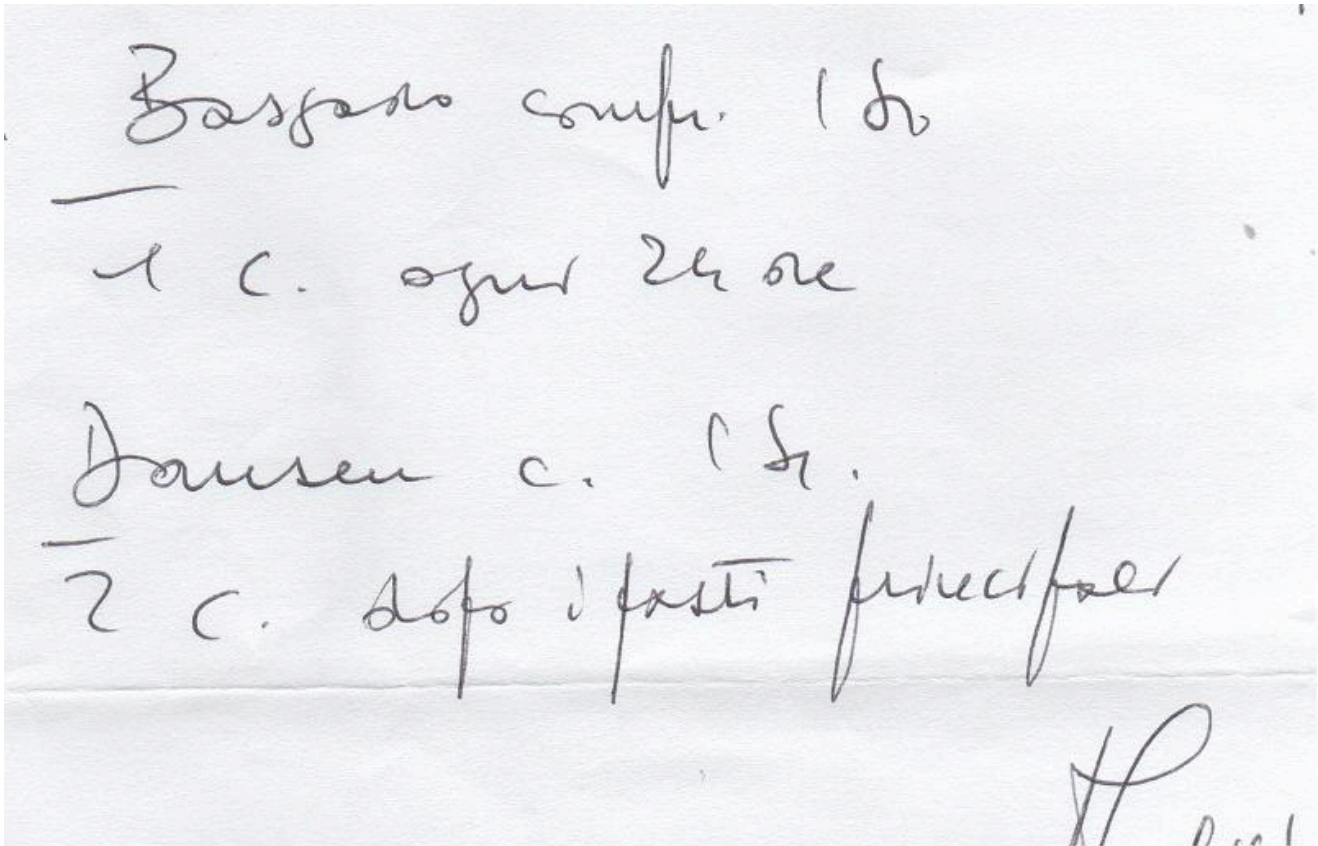 compr. 1 Sc
1 c. ogni 24 ore
Dansen c. 1 Sc.
2 c. dopo i pasti principali